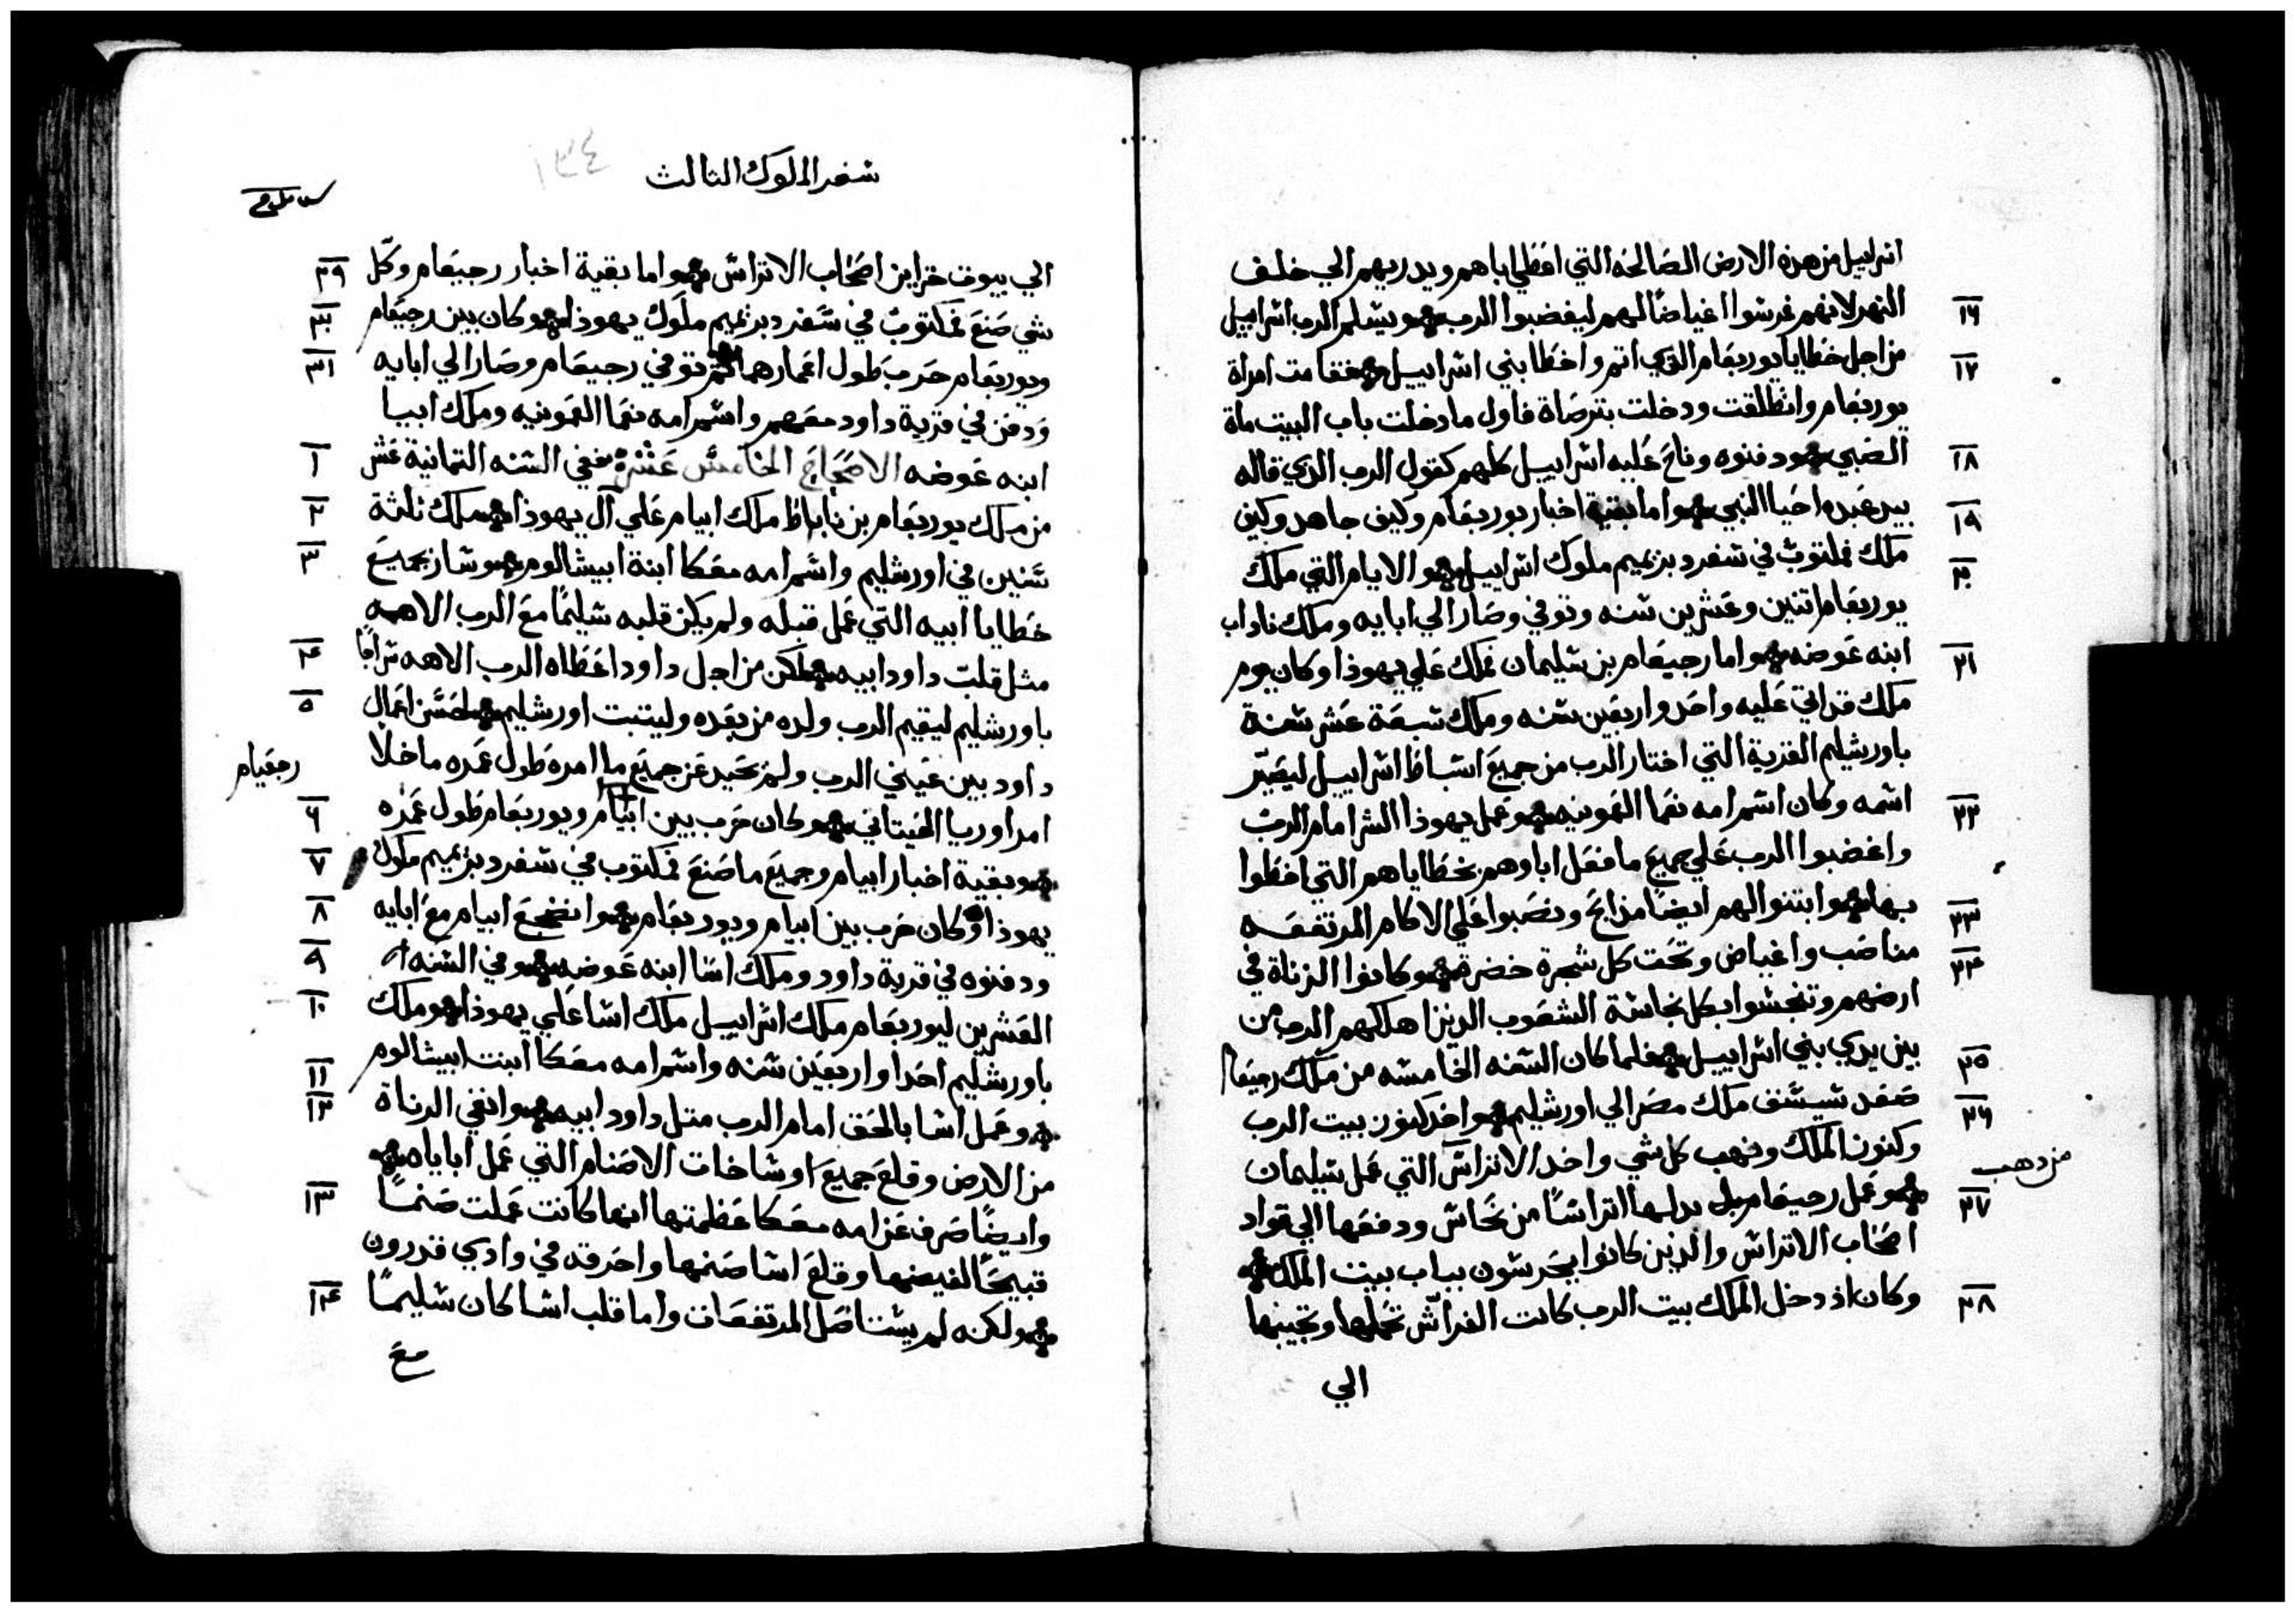 اسراييل من هذه الارض الصالحه التي اعطي اباهم ويدريهم الي خلف
١٦ النهر لانهم غرسوا اغياضًا لهم ليغضبوا الرب ويسلم الرب اسراييل
١٧ من اجل خطايا يوربعام الذي اثم واخطا بني اسراييل فقامت امراة
يوربعام وانطلقت ودخلت بترصاة فاول ما دخلت باب البيت مات
١٨ الصبي ودفنوه وناح عليه اسراييل كلهم كقول الرب الذي قاله
١٩ بيد عبده احيا النبي واما بقية اخبار يوربعام وكيف جاهد وكيف
٢٠ ملك فمكتوب في سفر دبريميم ملوك اسراييل والايام التي ملك
يوربعام اتنين وعشرين سنه وتوفي وصار الي ابايه وملك ناداب
٢١ ابنه عوضه واما رجيعام بن سليمان فملك علي يهوذا وكان يوم
ملك قد اتي عليه واحد واربعين سنه وملك سبعة عشر سنة
باورشليم القرية التي اختار الرب من جميع اسباط اسراييل ليصيّر
٢٢ اسمه وكان اسم امه نعما العمونيه وعمل يهوذا الشر امام الرب
واغضبوا الرب علي جميع ما فعل اباوهم بخطاياهم التي اخطوا
٢٣ بها وابتنوا لهم ايضًا مذابح ونصبوا علي الاكام المرتفعه
٢٤ مناصب واغياض وتحت كل شجرة خضرة وكانوا الزناة في
ارضهم وتنجسوا بكل نجاسة الشعوب الذين اهلكهم الرب من
٢٥ بين يدي بني اسراييل فلما كان السنه الخامسه من ملك رجيعام
٢٦ صعد شيشق ملك مصر الي اورشليم واخد كنوز بيت الرب
وكنوز الملك ونهب كل شي واخد الاتراس التي عمل سليمان
من دهب
٢٧ وعمل رجيعام بدلها اتراسًا من نحاس ودفعها الي قواد
اصحاب الاتراس والذين كانوا يحرسون بباب بيت الملك
٢٨ وكان اذ دخل الملك بيت الرب كانت الفراس تحملها وتجيبها
الي
سفر الملوك الثالث
١٣٤
٢٩ الي بيوت خزاين اصحاب الاتراس واما بقية اخبار رجيعام وكل
٣٠ شي صنع فمكتوب في سفر دبريميم ملوك يهوذا وكان بين رجيعام
٣١ ويوربعام حرب طول اعمارهما ثم توفي رجيعام وصار الي ابايه
ودفن في قرية داود معهم واسم امه نعما العمونيه وملك ابيا
١ ابنه عوضه الاصحاح الخامس عشر ففي السنه التمانية عشر
٢ من ملك يوربعام بن ناباط ملك ابيام علي آل يهوذا وملك ثلثة
٣ سنين في اورشليم واسم امه معكا ابنة ابيشالوم وسار بجميع
خطايا ابيه التي عمل قبله ولم يكن قلبه سليمًا مع الرب الاهه
٤ مثل قلب داود ابيه لكن من اجل داود اعطاه الرب الاهه سراجًا
٥ باورشليم ليقيم الرب ولده من بعده وليتبت اورشليم لحسن اعمال
داود بين عيني الرب ولم يحيد عن جميع ما امره طول عمره ما خلا
رجعيام
٦ امر اوريا الحيتاني وكان حرب بين ابيام ويوربعام طول عمره
٧ وبقية اخبار ابيام وجميع ما صنع فمكتوب في سفر دبريميم ملوك
٨ يهوذا وكان حرب بين ابيام ويوربعام واضجع ابيام مع ابايه
٩ ودفنوه في قرية داود وملك اسا ابنه عوضه وفي السنه
١٠ العشرين ليوربعام ملك اسراييل ملك اسا علي يهوذا وملك
١١ باورشليم احدا واربعين سنه واسم امه معكا ابنت ابيشالوم
١٢ وعمل اسا بالحق امام الرب متل داود ابيه وانفي الزناة
من الارض وقلع جميع اوساخات الاصنام التي عمل اباياه
١٣ وايضًا صرف عن امه معكا عظمتها انها كانت عملت صنمًا
قبيحًا لغيضها وقلع اسا صنمها واحرقه في وادي قدرون
١٤ ولكنه لم يستاصل المرتفعات واما قلب اسا كان سليمًا
مع